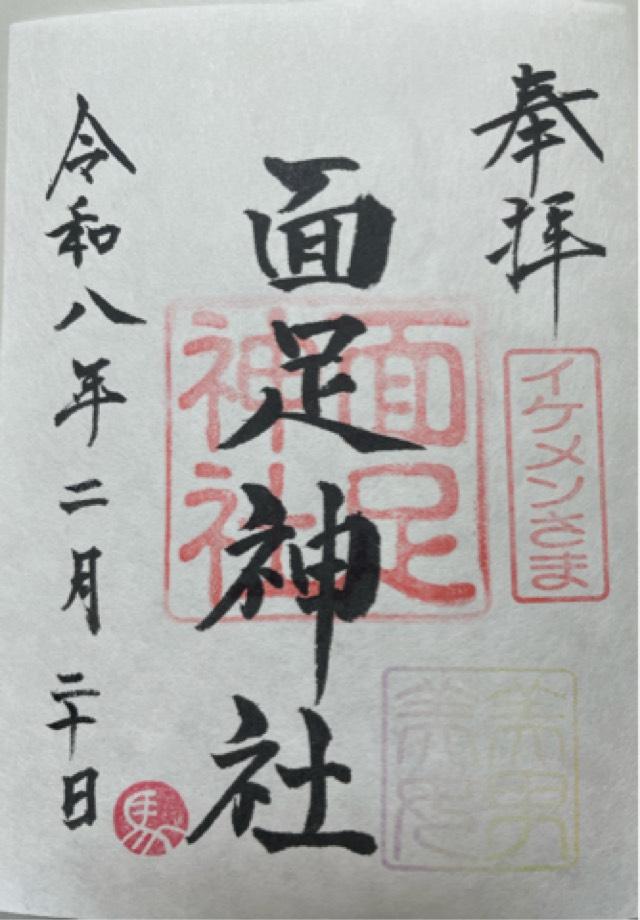 奉拝
イケメンさま
面足神社
面足
神社
美男
美女
令和八年二月二十日
馬